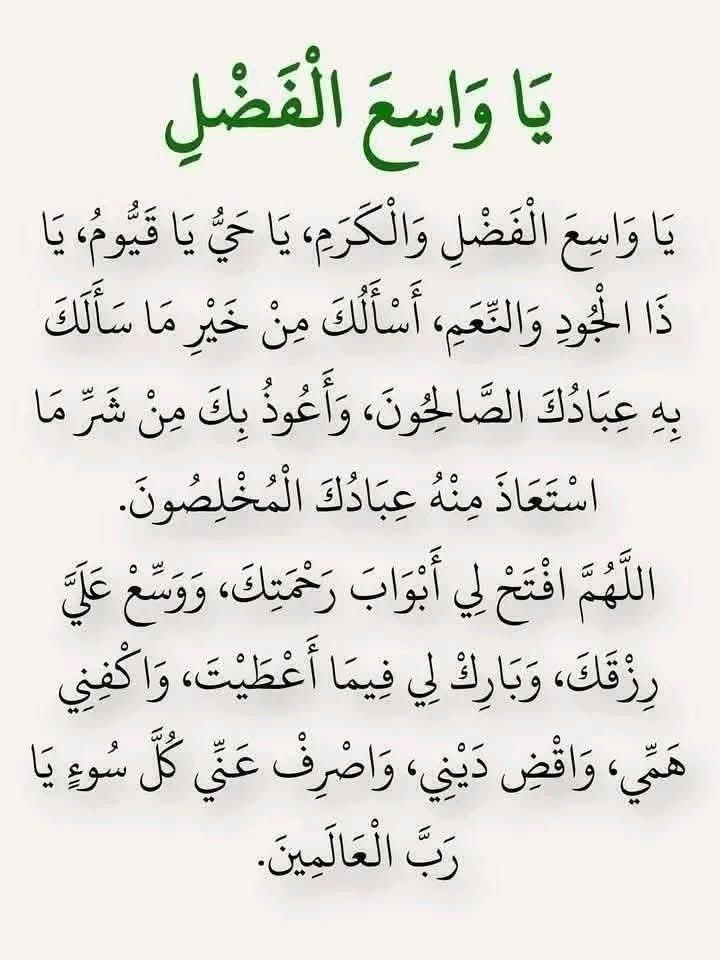 يَا وَاسِعَ الْفَضْلِ
يَا وَاسِعَ الْفَضْلِ وَالْكَرَمِ، يَا حَيُّ يَا قَيُّومُ، يَا
ذَا الْجُودِ وَالنِّعَمِ، أَسْأَلُكَ مِنْ خَيْرِ مَا سَأَلَكَ
بِهِ عِبَادُكَ الصَّالِحُونَ، وَأَعُوذُ بِكَ مِنْ شَرِّ مَا
اسْتَعَاذَ مِنْهُ عِبَادُكَ الْمُخْلِصُونَ.
اللَّهُمَّ افْتَحْ لِي أَبْوَابَ رَحْمَتِكَ، وَوَسِّعْ عَلَيَّ
رِزْقَكَ، وَبَارِكْ لِي فِيمَا أَعْطَيْتَ، وَاكْفِنِي
هَمِّي، وَاقْضِ دَيْنِي، وَاصْرِفْ عَنِّي كُلَّ سُوءٍ يَا
رَبَّ الْعَالَمِينَ.